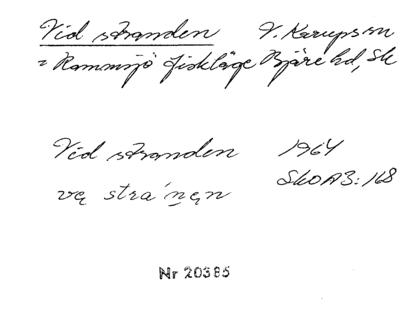 Vid stranden V. Karups sn
= Rammsjö fiskläge Bjäre hd, Sk
Vid stranden 1964
vę stra´nęn SkOA3:168
Nr 20385